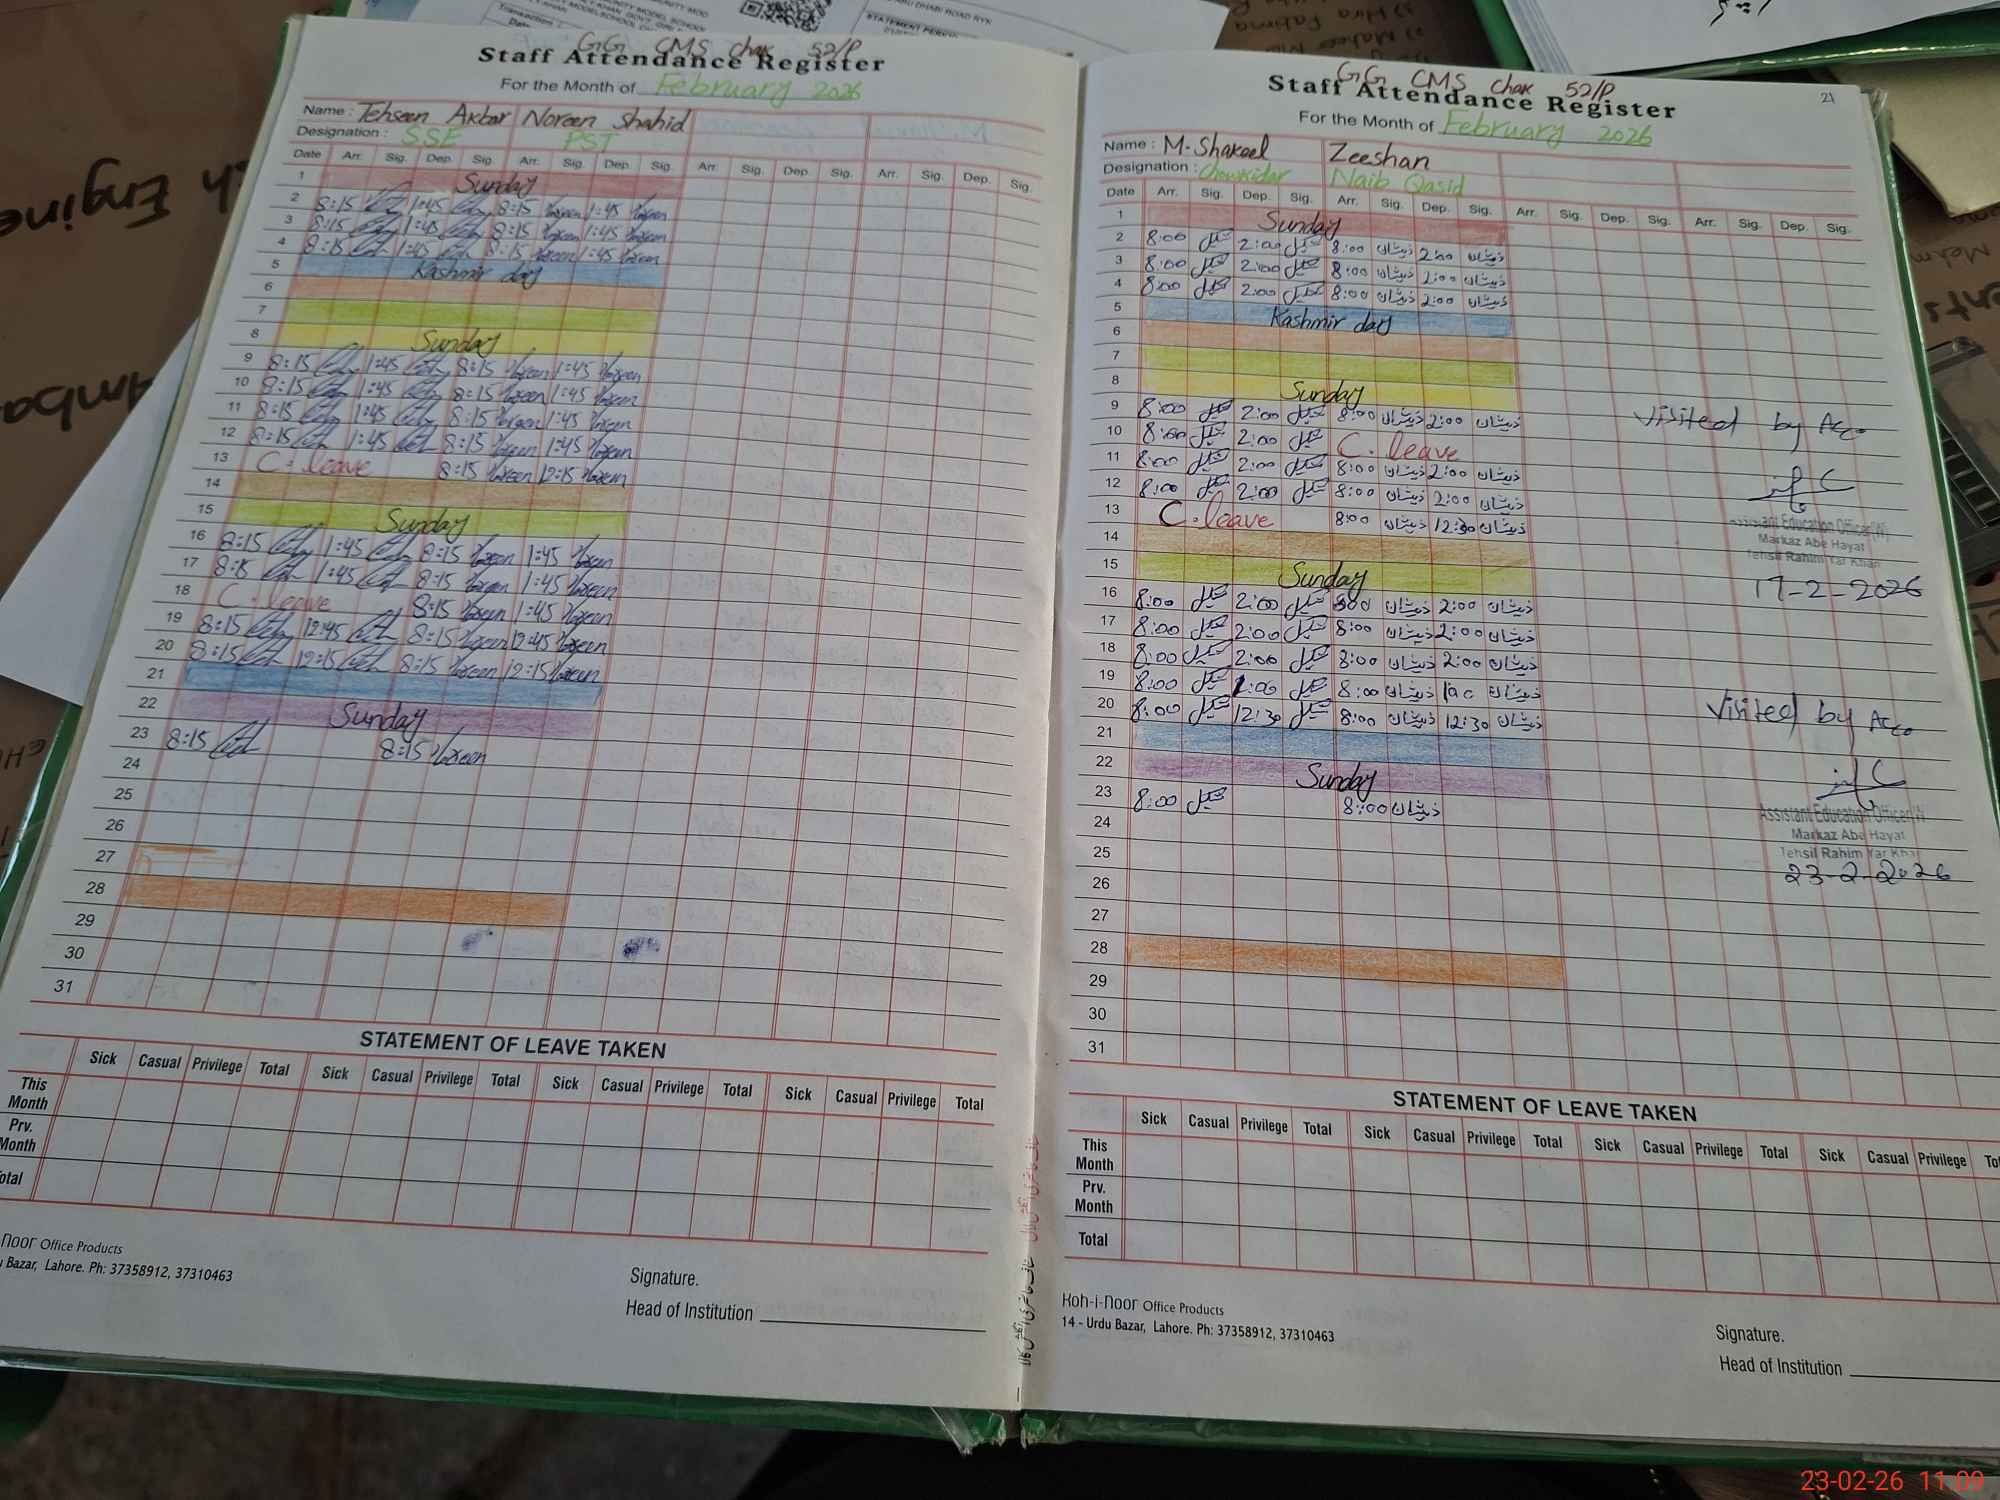 GG CMS Chak 52/P
Staff Attendance Register
For the Month of February 2026
Name : Tehseen Akbar Noreen Shahid
Designation : SSE PST
Date Arr. Sig. Dep. Sig. Arr. Sig. Dep. Sig. Arr. Sig. Dep. Sig. Arr. Sig. Dep. Sig.
1 Sunday
2 8:15 1:45 8:15 Noreen 1:45 Noreen
3 8:15 1:45 8:15 Noreen 1:45 Noreen
4 8:15 1:45 8:15 Noreen 1:45 Noreen
5 Kashmir day
6
7
8 Sunday
9 8:15 1:45 8:15 Noreen 1:45 Noreen
10 8:15 1:45 8:15 Noreen 1:45 Noreen
11 8:15 1:45 8:15 Noreen 1:45 Noreen
12 8:15 1:45 8:15 Noreen 1:45 Noreen
13 C. leave 8:15 Noreen 12:15 Noreen
14
15 Sunday
16 8:15 1:45 8:15 Noreen 1:45 Noreen
17 8:15 1:45 8:15 Noreen 1:45 Noreen
18 C. leave 8:15 Noreen 1:45 Noreen
19 8:15 12:45 8:15 Noreen 12:45 Noreen
20 8:15 12:15 8:15 Noreen 12:15 Noreen
21
22 Sunday
23 8:15 8:15 Noreen
24
25
26
27
28
29
30
31
STATEMENT OF LEAVE TAKEN
Sick Casual Privilege Total Sick Casual Privilege Total Sick Casual Privilege Total Sick Casual Privilege Total
This Month
Prv. Month
otal
noor Office Products
Bazar, Lahore. Ph: 37358912, 37310463
Signature.
Head of Institution
21
GG CMS Chak 52/P
Staff Attendance Register
For the Month of February 2026
Name : M.Shakeel Zeeshan
Designation : Chowkidar Naib Qasid
Date Arr. Sig. Dep. Sig. Arr. Sig. Dep. Sig. Arr. Sig. Dep. Sig. Arr. Sig. Dep. Sig.
1 Sunday
2 8:00 شکیل 2:00 شکیل 8:00 ذیشان 2:00 ذیشان
3 8:00 شکیل 2:00 شکیل 8:00 ذیشان 2:00 ذیشان
4 8:00 شکیل 2:00 شکیل 8:00 ذیشان 2:00 ذیشان
5 Kashmir day
6
7
8 Sunday
9 8:00 شکیل 2:00 شکیل 8:00 ذیشان 2:00 ذیشان
10 8:00 شکیل 2:00 شکیل C. leave
11 8:00 شکیل 2:00 شکیل 8:00 ذیشان 2:00 ذیشان
12 8:00 شکیل 2:00 شکیل 8:00 ذیشان 2:00 ذیشان
13 C. leave 8:00 ذیشان 12:30 ذیشان
14
15 Sunday
16 8:00 شکیل 2:00 شکیل 8:00 ذیشان 2:00 ذیشان
17 8:00 شکیل 2:00 شکیل 8:00 ذیشان 2:00 ذیشان
18 8:00 شکیل 2:00 شکیل 8:00 ذیشان 2:00 ذیشان
19 8:00 شکیل 1:00 شکیل 8:00 ذیشان 1:00 ذیشان
20 8:00 شکیل 12:30 شکیل 8:00 ذیشان 12:30 ذیشان
21
22 Sunday
23 8:00 شکیل 8:00 ذیشان
24
25
26
27
28
29
30
31
Visited by
Assistant Education Officer
Markaz Abe Hayat
Tehsil Rahim Yar Khan
17-2-2026
Visited by
Assistant Education Officer
Markaz Abe Hayat
Tehsil Rahim Yar Khan
23-2-2026
STATEMENT OF LEAVE TAKEN
Sick Casual Privilege Total Sick Casual Privilege Total Sick Casual Privilege Total Sick Casual Privilege
This Month
Prv. Month
Total
Koh-i-noor Office Products
14 - Urdu Bazar, Lahore. Ph: 37358912, 37310463
Signature.
Head of Institution
23-02-26 11:09